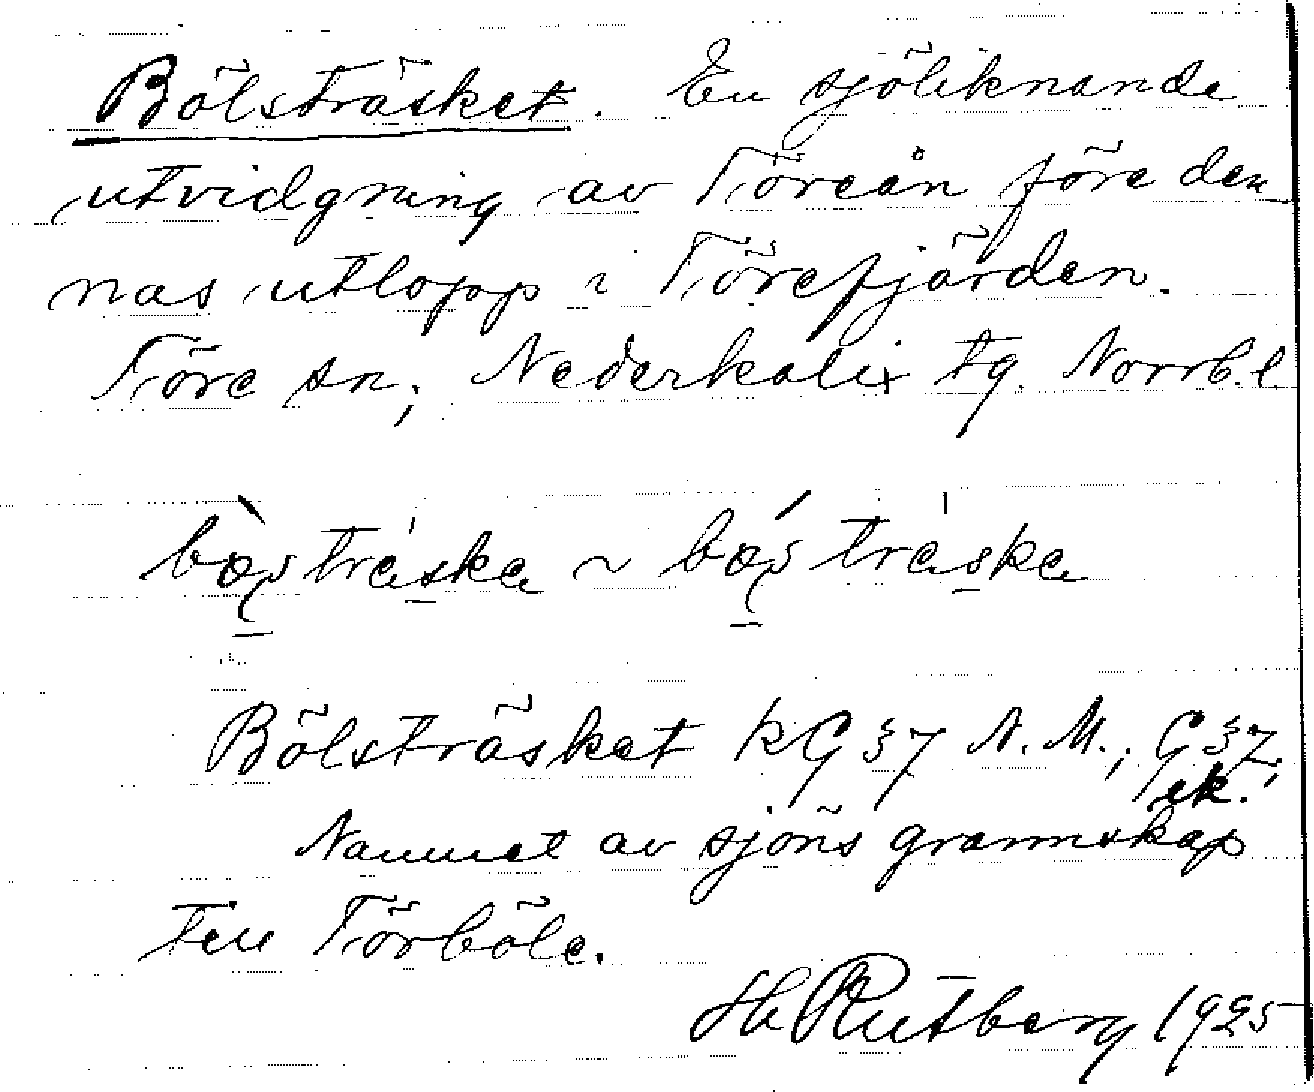 Bölsträsket. En sjöliknande
utvidgning av Töreån före den
nas utlopp i Törefjärden.
Töre sn; Nederkalix tg. Norrb. l
Bölsträsket kG 37 N. M.; G 37,
ek.
Namnet av sjöns grannskap
till Törböle.
Hj Rutberg 1925